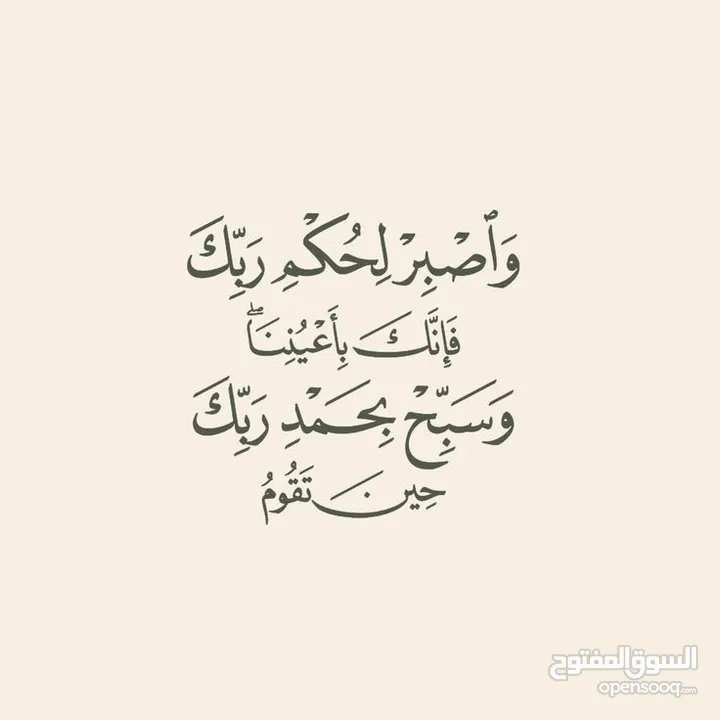 وَٱصْبِرْ لِحُكْمِ رَبِّكَ
فَإِنَّكَ بِأَعْيُنِنَاۖ
وَسَبِّحْ بِحَمْدِ رَبِّكَ
حِينَ تَقُومُ
السوق المفتوح
opensooq.com